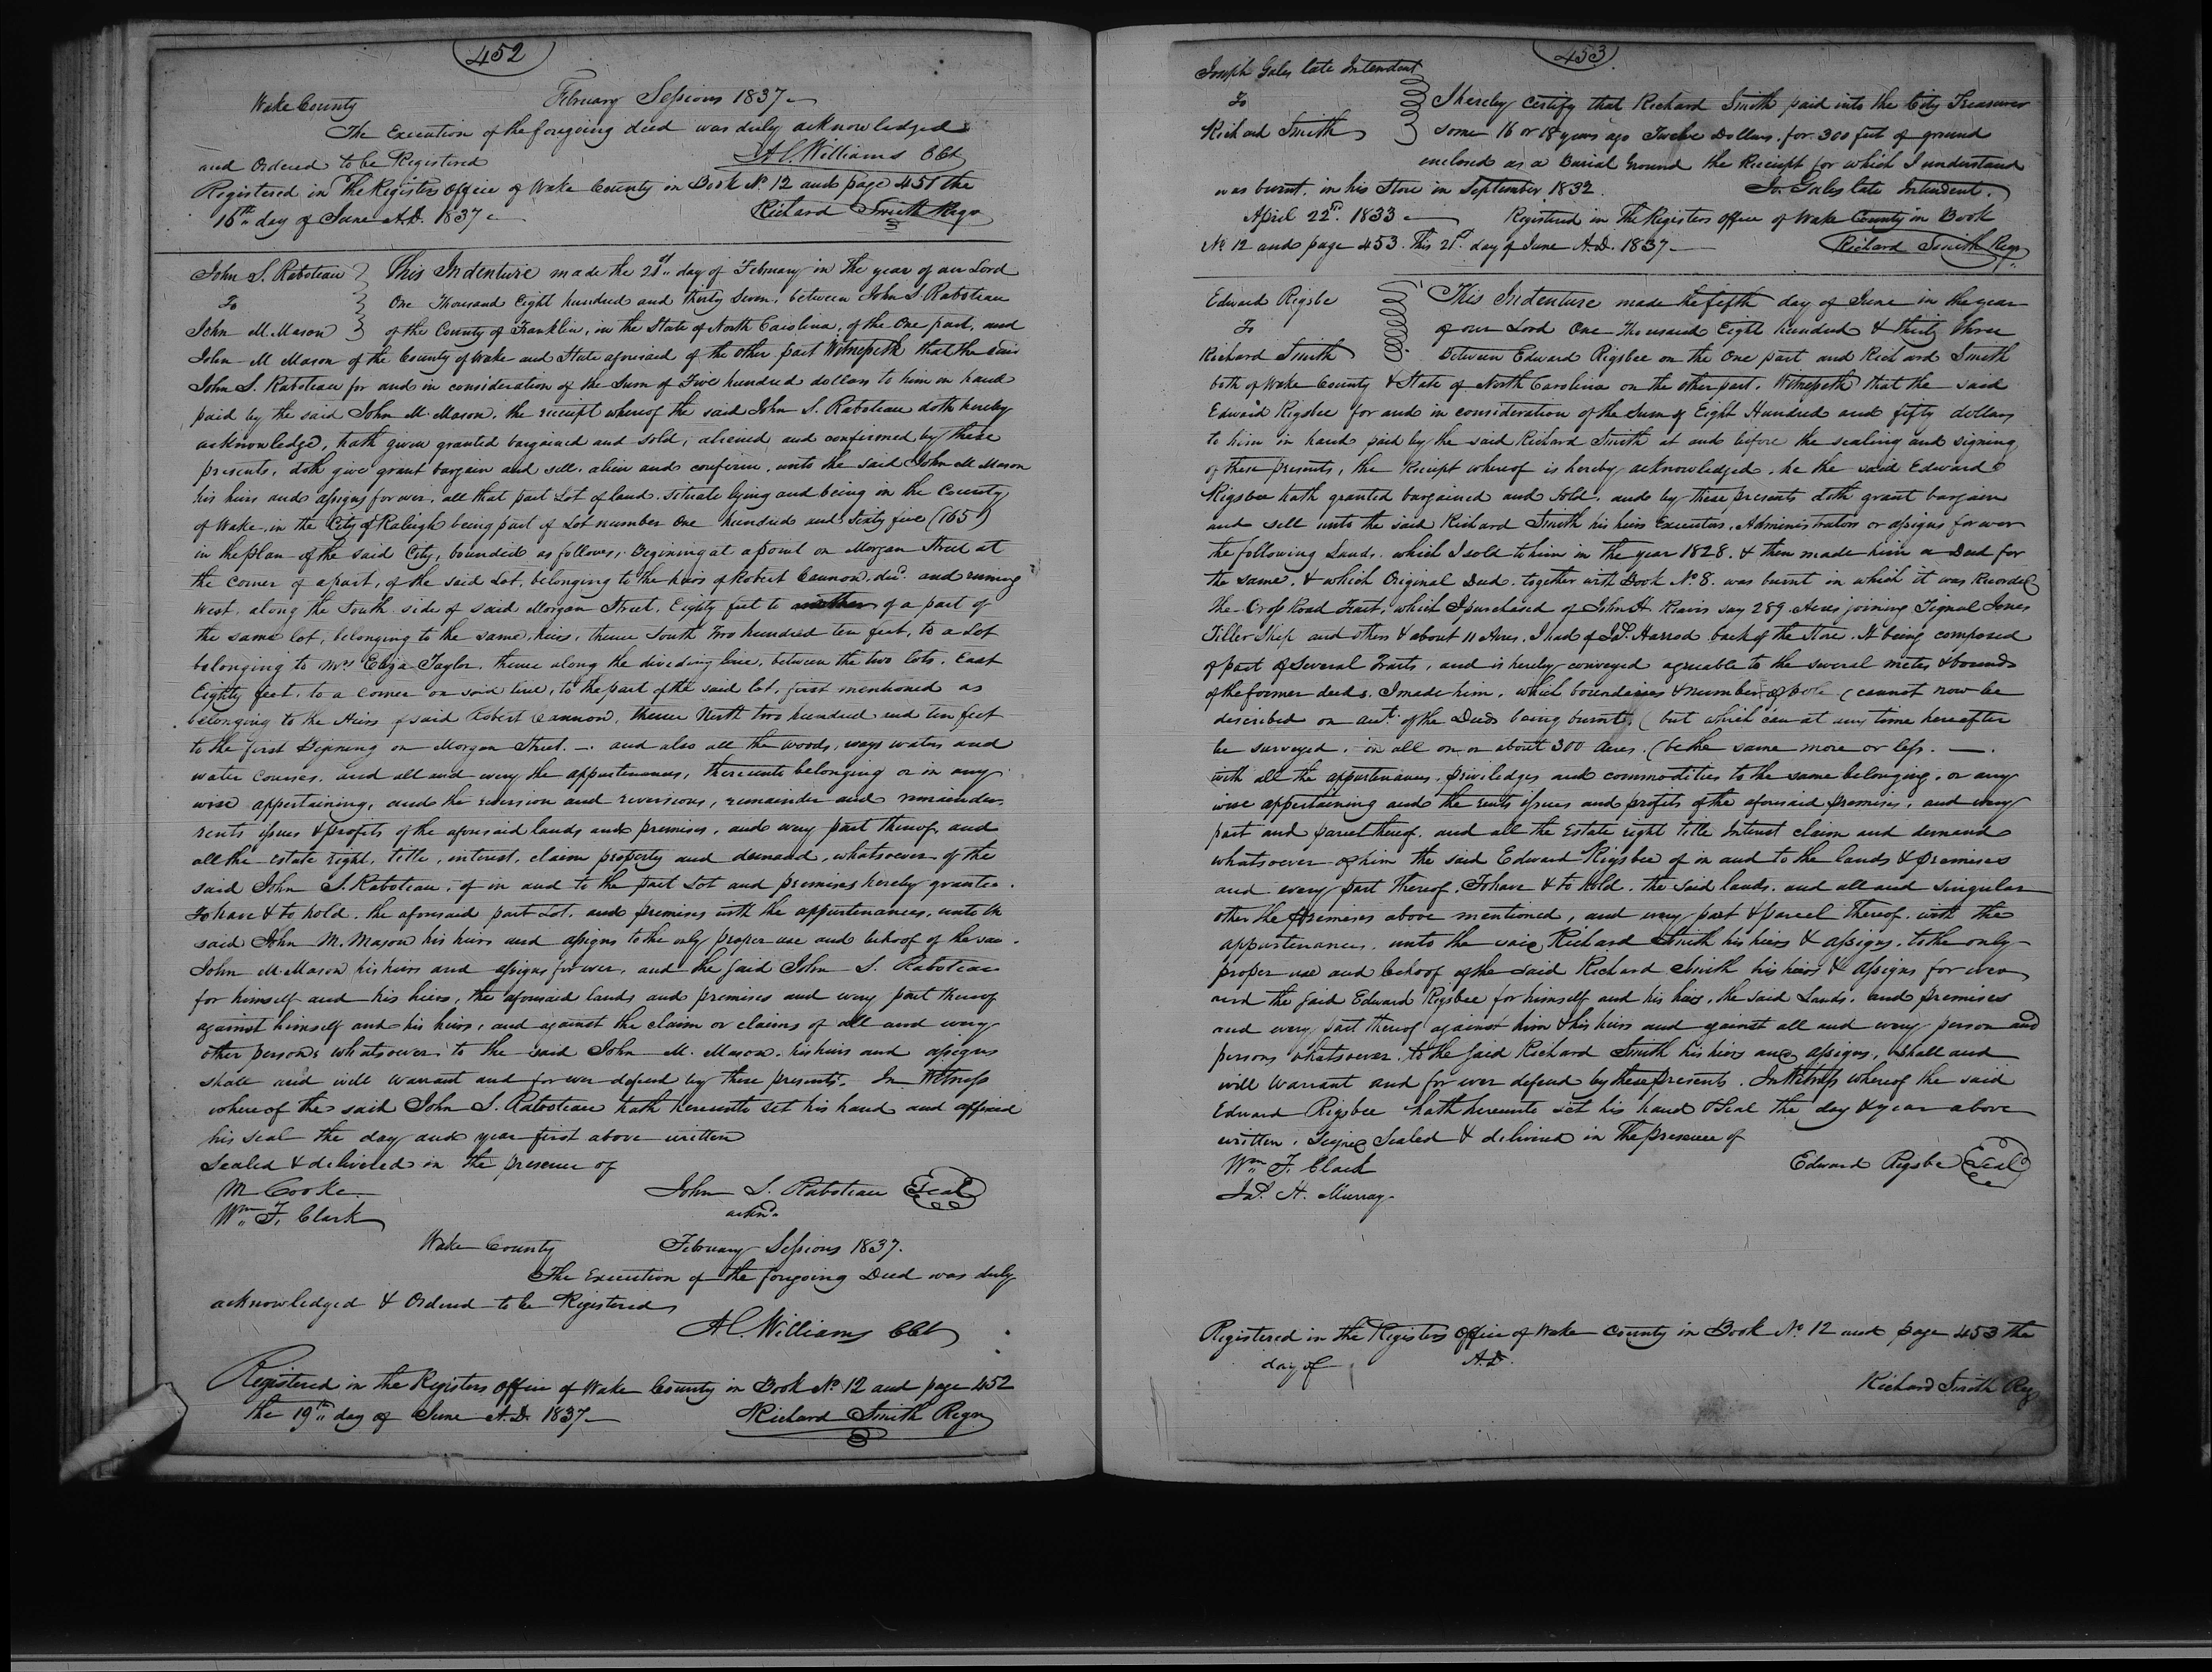 452
Wake County February Sessions 1837
The Execution of the foregoing deed was duly acknowledged
and Ordered to be Registered A. Williams CCk
Registered in The Registers Office of Wake County in Book No. 12 and page 451 the
16th day of June A.D. 1837 Richard Smith Regr
John S. Raboteau This Indenture made the 21st day of February in the year of our Lord
To One Thousand Eight hundred and thirty Seven, between John S Raboteau
John M. Mason of the County of Franklin, in the State of North Carolina, of the One part, and
John M Mason of the County of Wake and State aforesaid of the other part Witnesseth that the said
John S. Raboteau for and in consideration of the Sum of Five hundred dollars to him in hand
paid by the said John M. Mason, the receipt whereof the said John S. Raboteau doth hereby
acknowledge, hath given granted bargained and sold, aliened and confirmed by these
presents, doth give grant bargain and sell, alien and confirm, unto the said John M Mason
his heirs and assigns for ever, all that part Lot of land situate lying and being in the County
of Wake, in the City of Raleigh being part of Lot number One hundred and Sixty five (165)
in the plan of the said City, bounded as follows, Beginning at a point on Morgan Street at
the corner of a part, of the said Lot, belonging to the heirs of Robert Cannon, decd. and runing
West, along the South side of said Morgan Street, Eighty feet to of a part of
the same lot, belonging to the same, heirs, thence South Two hundred ten feet, to a Lot
belonging to Mrs Eliza Taylor, thence along the dividing line, between the two lots, East
Eighty feet, to a corner on said line, to the part of the said lot, first mentioned as
belonging to the Heirs of said Robert Cannon, thence North two hundred and ten feet
to the first Beginning on Morgan Street. — and also all the woods, ways waters and
water courses, and all and every the appurtenances, thereunto belonging or in any
wise appertaining, and the reversion and reversions, remainder and remainders,
rents issues & profits of the aforesaid lands and premises, and every part thereof, and
all the estate right, title, interest, claim property and demand, whatsoever of the
said John S. Raboteau, of in and to the part Lot and premises hereby granted.
To have & to hold, the aforesaid part Lot, and premises with the appurtenances, unto the
said John M. Mason his heirs and assigns to the only proper use and behoof of the said
John M. Mason his heirs and assigns for ever, and the said John S. Raboteau
for himself and his heirs, the aforesaid lands and premises and every part thereof
against himself and his heirs, and against the claim or claims of all and every
other persons whatsoever to the said John M. Mason, his heirs and assigns
shall and will warrant and for ever defend by these presents. In Witness
whereof the said John S. Raboteau hath hereunto set his hand and affixed
his seal the day and year first above written
Sealed & delivered in the presence of
M Cooke John S. Raboteau Seal
Wm F. Clark ackd.
Wake County February Sessions 1837.
The Execution of the foregoing Deed was duly
acknowledged & Ordered to be Registered
A. Williams CCk
Registered in the Registers Office of Wake County in Book No. 12 and page 452
the 19th day of June A.D. 1837 Richard Smith Regr
453
Joseph Gales late Intendent
To I hereby certify that Richard Smith paid into the City Treasurer
Richard Smith some 16 or 18 years ago Twelve Dollars for 300 feet of ground
enclosed as a Burial Ground the Receipt for which I understand
was burnt in his Store in September 1832. Jos Gales late Intendent.
April 22d. 1833 Registered in The Registers Office of Wake County in Book
No 12 and page 453. This 21st day of June A.D. 1837 Richard Smith Regr
Edward Rigsbe This Indenture made the fifth day of June in the year
To of our Lord One Thousand Eight hundred & thirty three
Richard Smith Between Edward Rigsbee on the One part and Richard Smith
both of Wake County & State of North Carolina on the other part, Witnesseth that the said
Edward Rigsbee for and in consideration of the Sum of Eight Hundred and fifty dollars
to him in hand paid by the said Richard Smith at and before the sealing and signing
of these presents, the Receipt whereof is hereby acknowledged, he the said Edward
Rigsbee hath granted bargained and Sold, and by these presents doth grant bargain
and sell unto the said Richard Smith his heirs Executors, Administrators or assigns for ever
the following Lands, which I sold to him in the year 1828, & then made him a Deed for
the same, & which Original Deed together with Book No 8. was burnt in which it was Recorded
The Cross Road Tract, which I purchased of John H. say 289 Acres joining Tignal Jones
and others & about 11 Acres, I had of Jas. Harrod back of the Store. It being composed
of part of Several Tracts, and is hereby conveyed agreable to the several metes & bounds
of the former deeds, I made him, which bounderies & number of pole (cannot now be
described on act. of the Deeds being burnt, (but which can at any time hereafter
be surveyed, in all on or about 300 Acres. (be the same more or less. —.
with all the appurtenances, priviledges and commodities to the same belonging, or any
wise appertaining and the rents issues and profits of the aforesaid premises, and every
part and parcel thereof, and all the Estate right title Interest claim and demand
whatsoever of him the said Edward Rigsbee of in and to the lands & premises
and every part thereof, To have & to hold, the said lands, and all and singular
other the premises above mentioned, and every part & parcel thereof, with the
appurtenances, unto the said Richard Smith his heirs & assigns, to the only
proper use and behoof of the said Richard Smith his heirs & assigns for ever
and the said Edward Rigsbee for himself and his heirs, the said Lands, and premises
and every part thereof against him & his heirs and against all and every person and
persons whatsoever, to the said Richard Smith his heirs and assigns, shall and
will warrant and for ever defend by these presents. In Witness whereof the said
Edward Rigsbee hath hereunto set his hand & Seal the day & year above
written. Signed Sealed & delivered in The presence of
Wm F. Clark Edward Rigsbe Seal
Jas. H. Murray
Registered in the Registers Office of Wake County in Book No. 12 and page 453 the
day of A.D.
Richard Smith Reg